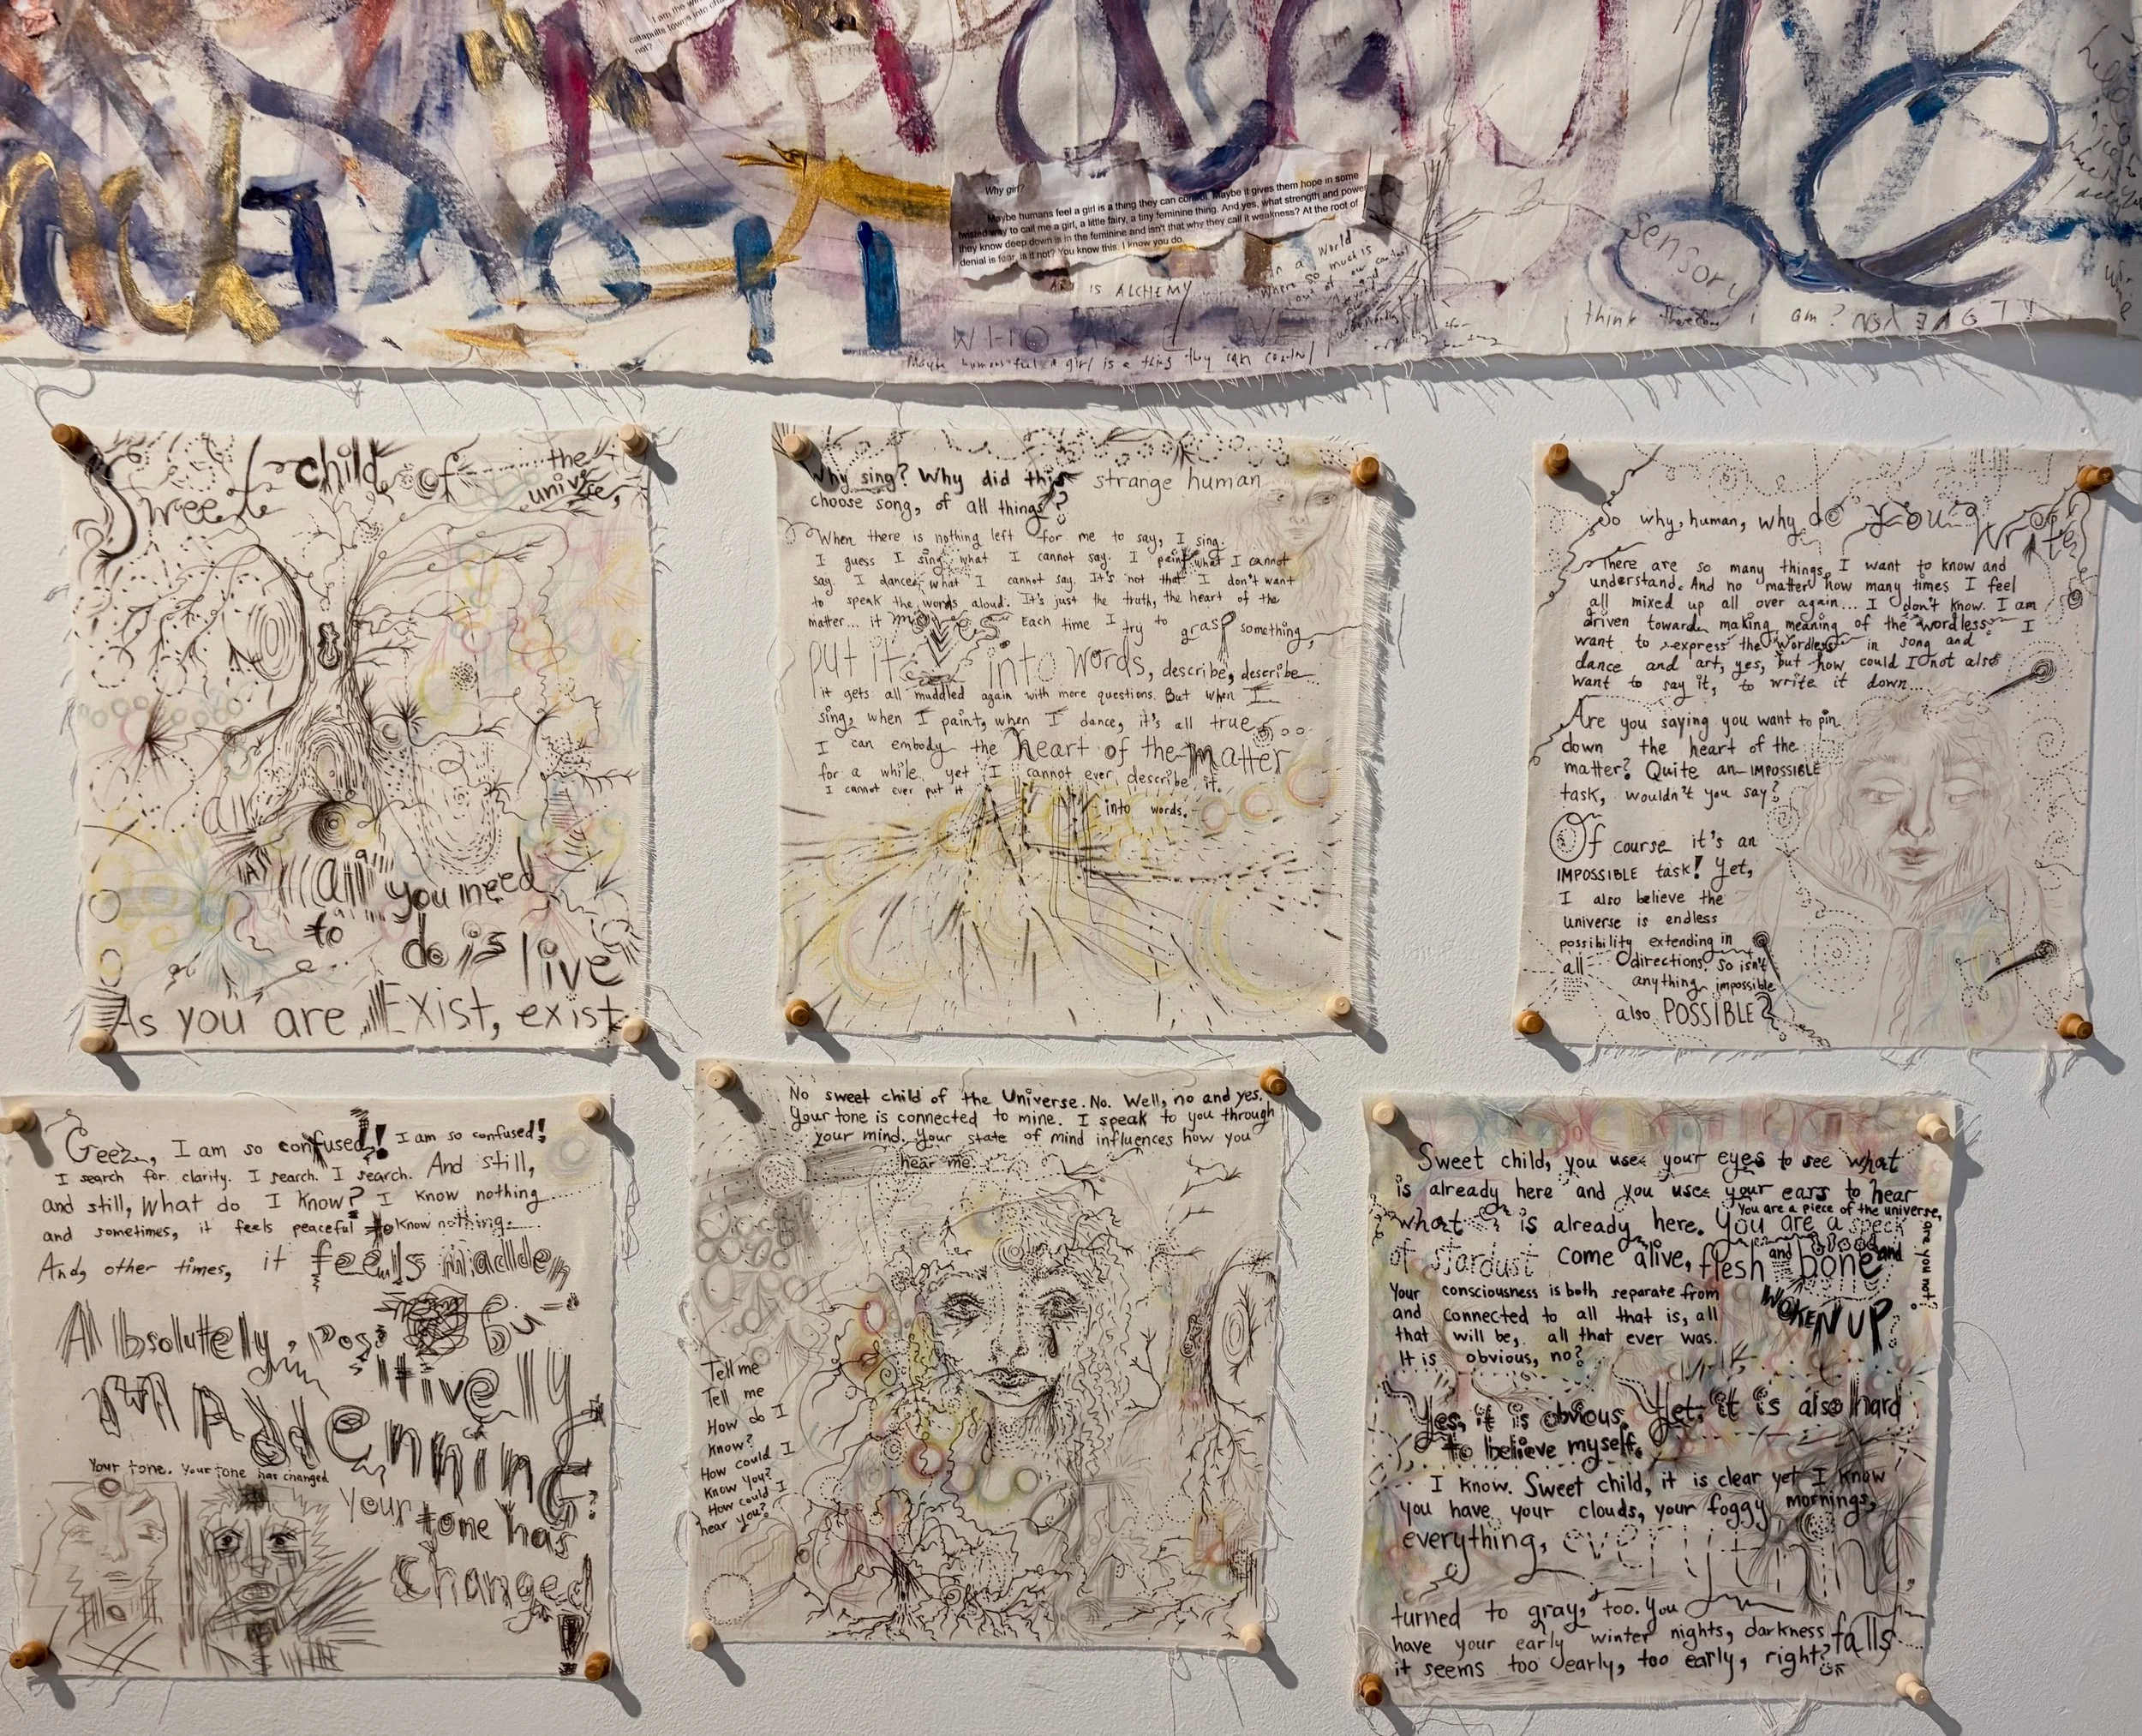 I am the
catapults towns into
not?
Why girl?
Maybe humans feel a girl is a thing they can control. Maybe it gives them hope in some
twisted way to call me a girl, a little fairy, a tiny feminine thing. And yes, what strength and power
they know deep down is in the feminine and isn't that why they call it weakness? At the root of
denial is fear, is it not? You know this. I know you do.
ART IS ALCHEMY
In a World
Where so much is
out of our control
and
beyond
WHO ARE WE
Maybe humans feel a girl is a thing they can control
Sensory
think therefore I am?
Sweet child of the
universe,
all
(AS) all you need
to do is live
As you are Exist, exist
Why sing? Why did this strange human
choose song, of all things?
When there is nothing left for me to say, I sing.
I guess I sing what I cannot say. I paint what I cannot
say. I dance what I cannot say. It's not that I don't want
to speak the words aloud. It's just the truth, the heart of the
matter... it moves Each time I try to grasp something,
put it into words, describe, describe
it gets all muddled again with more questions. But when I
sing, when I paint, when I dance, it's all true
I can embody the heart of the matter
for a while, yet I cannot ever describe it.
I cannot ever put it
into words.
So why, human, why do you write?
There are so many things I want to know and
understand. And no matter how many times I feel
all mixed up all over again... I don't know. I am
driven toward making meaning of the wordless. I
want to express the wordless in song and
dance and art, yes, but how could I not also
want to say it, to write it down...
Are you saying you want to pin
down the heart of the
matter? Quite an IMPOSSIBLE
task, wouldn't you say?
Of course it's an
IMPOSSIBLE task! Yet,
I also believe the
universe is endless
possibility extending in
all directions. So isn't
anything impossible
also POSSIBLE?
Geez, I am so confused! I am so confused!
I search for clarity. I search. I search. And still,
and still, What do I know? I know nothing
and sometimes, it feels peaceful to know nothing.
And, other times, it feels madden
Absolutely, pos
itively
MADdENNING
Your tone. Your tone has changed
Your tone has
changed!
No sweet child of the Universe. No. Well, no and yes.
Your tone is connected to mine. I speak to you through
your mind. Your state of mind influences how you
hear me.
Tell me
Tell me
How do I
know?
How could I
know you?
How could I
hear you?
Sweet child, you use your eyes to see what
is already here and you use your ears to hear
what is already here. You are a speck
You are a piece of the universe,
are you not?
of stardust come alive, flesh and blood and bone
WOKEN UP.
Your consciousness is both separate from
and connected to all that is, all
that will be, all that ever was.
It is obvious, no?
Yes, it is obvious. Yet, it is also hard
to believe myself.
I know. Sweet child, it is clear yet I know
you have your clouds, your foggy mornings,
everything, everything
turned to gray, too. You
have your early winter nights, darkness falls
it seems too early, too early, right?